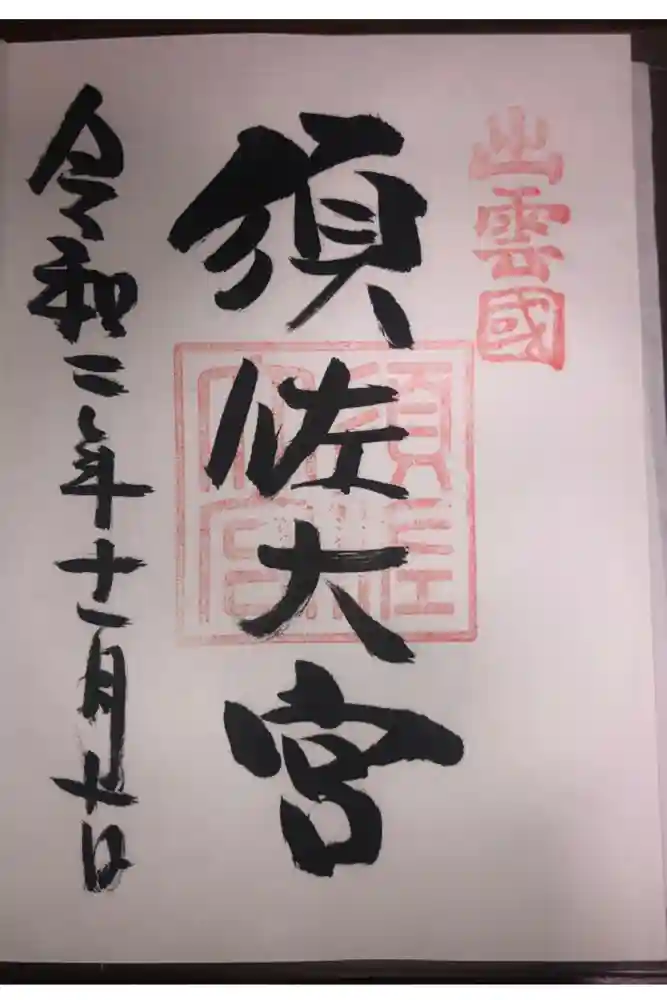 出雲國
須佐大宮
須佐
大宮
令和二年十一月廿日